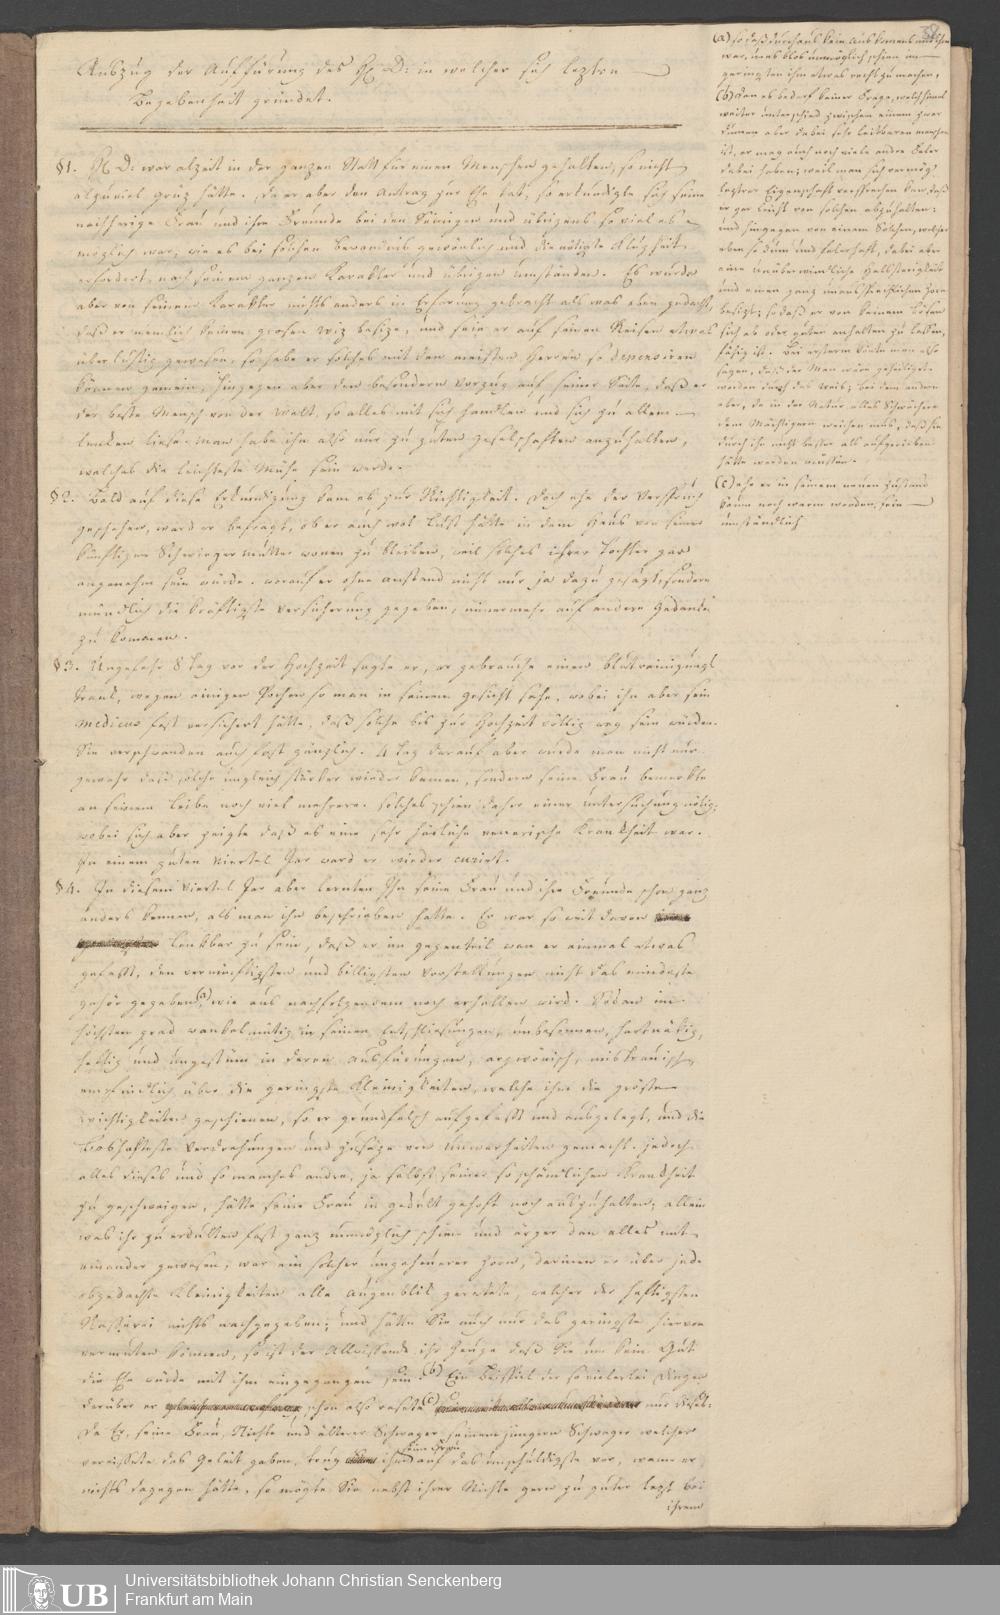 Auszug der Aufführung des H. D: in welcher sich leztere
Begebenheit gründet.
§1. H. D: war alzeit in der ganzen Statt für einen Menschen gehalten, so nicht
alzuviel Wiz hätte. Da er aber den Antrag zur Ehe tat, so erkundigte sich seine
nachherige Frau und ihre Freunde bei den Seinigen und übrigens so viel als
möglich war, wie es bei solchen gewönlich und die nötigste Klugheit
erfordert, nach seinem ganzen Karakter und übrigen umständen. Es wurde
aber von seinem Karakter nichts anders in Erfarung gebracht als was eben gedacht,
daß er nemlich keinen grosen Wiz besize, und seie er auf seinen Reisen etwas
über lustig gewesen, so habe er solches mit den meisten Herren so depensiren
können gemein; Hingegen aber den besondern Vorzug auf seiner Seite, daß er
der beste Mensch von der Welt, so alles mit sich handlen und sich zu allem
lenken liese. man habe ihn also nur zu guten Geselschaften anzuhalten,
welches die leichteste Mühe sein werde.
§2. Bald auf diese Erkundigung kam es zur Richtigkeit. Doch ehe der Verspruch
geschehen, ward er befragt, ob er auch wol Lust hätte in dem Haus von seiner
künftigen Schwieger mutter wonen zu bleiben, weil solches ihrer Tochter gar
angenehm sein würde. worauf er ohne anstand nicht nur ja dazu gesagt, sondern
mündlich die kräftigste Versicherung gegeben, nimmermehr auf andere Gedanken
zu kommen.
§3. Ungefehr 8 Tag vor der Hochzeit sagte er, er gebrauche einen blutreinigungs
trank, wegen einigen Pocken so man in seinem gesicht sahe, wobei ihn aber sein
Medicus fest versichert hätte, daß solche bis zur Hochzeit völlig weg sein würden.
Sie verschwanden auch fast gänzlich. 4 Tag darauf aber wurde man nicht nur
gewahr daß solche ungleich stärker wieder kamen, sondern seine Frau bemerkte
an seinem Leibe noch viel mehrere. solches schien daher einer untersuchung nötig,
wobei sich aber zeigte daß es eine sehr häsliche venerische Krankheit war.
In einem guten Viertel Jar ward er wieder curirt.
§4. In diesem Viertel Jar aber lernten Ihn seine Frau und ihre Freunde schon ganz
anders kennen, als man ihn beschrieben hatte. Er war so weit davon
lenkbar zu sein, daß er im gegenteil wan er einmal etwas
gefasst, den vernünftigsten und billigsten Vorstellungen nicht das mindeste
gehör gegeben (a), wie aus nachfolgendem noch erhellen wird. Sodan im
höchsten grad wankelmütig in seinen Entschliesungen, unbesonnen, hartnäkig,
heftig und ungestüm in deren ausfürungen, argwönisch, mistrauisch,
empfindlich über die geringste Kleinigkeiten, welche ihm die gröste
wichtigkeiten geschienen, so er grundfalsch aufgefasst und ausgelegt, und die
boshafteste Verdrehungen und Zusäze von Unwarheiten gemacht. jedoch
alles dieses und so manches andre, ja selbst seiner so schändlichen Krankheit
zu geschweigen, hätte seine Frau in gedult gehoft noch auszuhalten; allein
was ihr zu erdulten fast ganz unmöglich schien und ärger dan alles mit
einander gewesen, war ein solcher ungeheurer Zorn, darinen er über jede
obgedachte Kleinigkeiten alle augenblik geratete, welcher der heftigsten
Raserei nichts nachgegeben; und hätte Sie auch nur das geringste hiervon
vermuten können, so ist der Allwissende ihr Zeuge daß Sie um kein Gut
die Ehe würde mit ihm eingegangen sein. (b) Ein Beispiel der so vielerlei Dingen
darüber er schon also rasete (c) nur dieses:
Da Er, seine Frau, Nichte und älterer Schwager, seinem jüngern Schwager welcher
verreissete das Geleit gaben, trug ihm seine Frau auf das unschuldigste vor, wann er
nichts dagegen hätte, so mögte Sie nebst ihrer Nichte gern zu guter lezt bei
ihrem
38
(a) so daß durchaus kein auskommens mit ihm
war, und es blos unmöglich schien im
geringsten ihm etwas recht zu machen,
(b) Dan es bedarf keiner Frage, welch himel
weiter unterschied zwischen einem zwar
dumen aber dabei sehr leitbaren menschen
ist, er mag auch noch viele andre Feler
dabei haben; weil man sich vermög
lezterer Eigenschaft versprechen kan, daß
er gar leicht von solchen abzuhalten;
und hingegen von einem Solchen, welcher
eben so dum und felerhaft, dabei aber
eine unüberwindliche Halsstarrigkeit
und einen ganz unaussprechlichen Zorn
besizt; so daß er von keinem Bösen
sich ab oder guten anhalten zu lassen,
fähig ist. Bei ersterm könte man also
sagen, daß der Man wäre geheiliget
worden durch das Weib; bei dem andern
aber, da in der Natur alles Schwächere
dem Mächtigern weichen mus, daß sie
durch ihn nicht besser als aufgerieben
hätte werden müssen.
(c) ehe er in seinem neuen Zustand
kaum noch warm worden, seie
umständlich
UB
Universitätsbibliothek Johann Christian Senckenberg
Frankfurt am Main